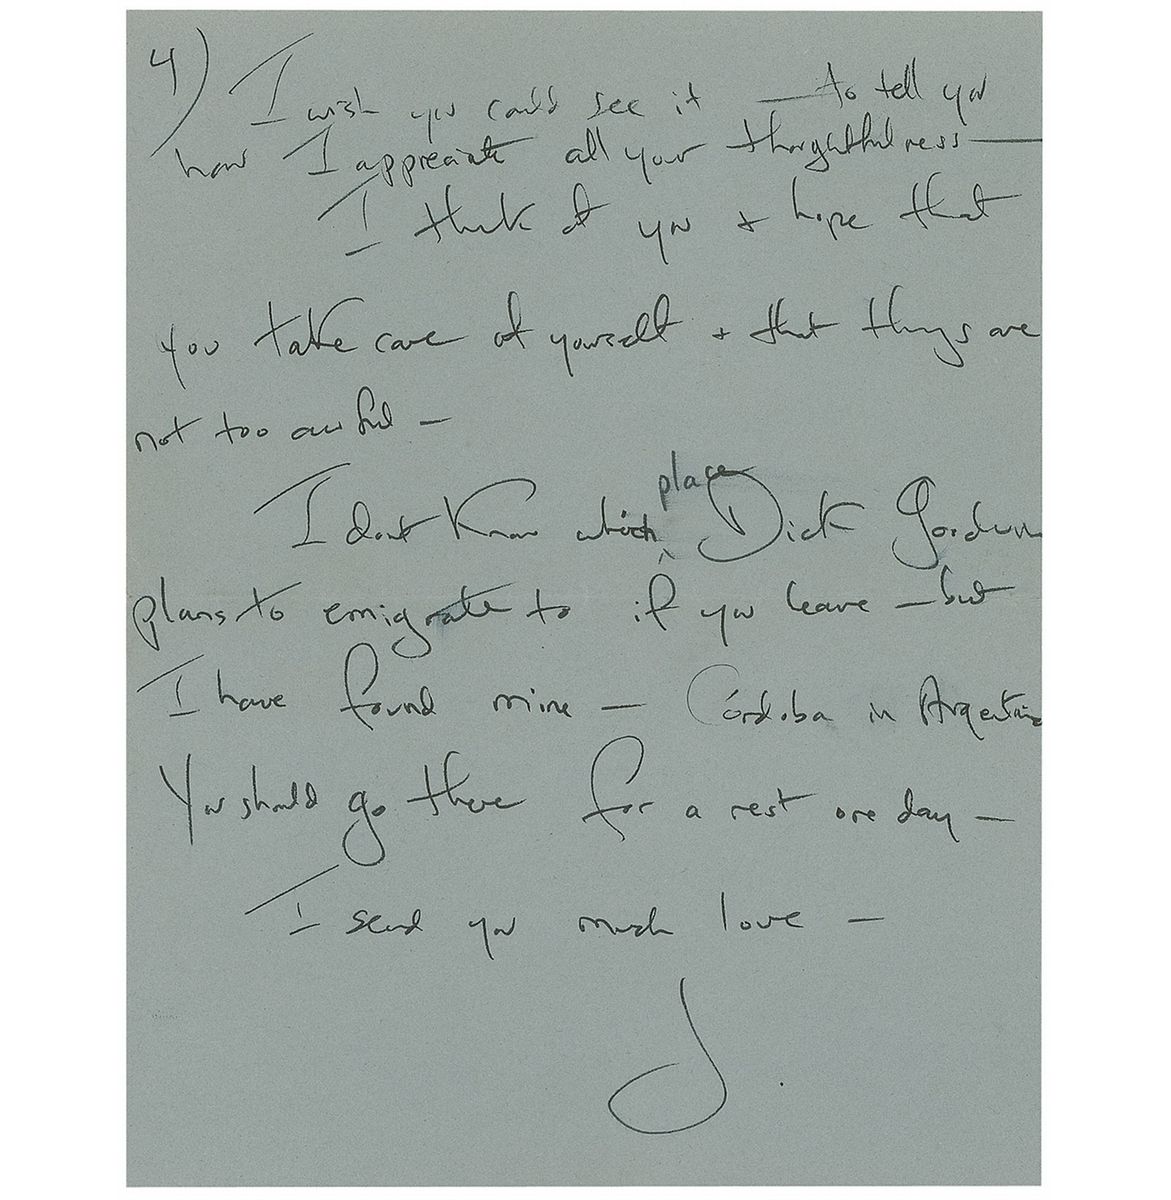 4)
I wish you could see it — to tell you
how I appreciate all your thoughtfulness —
I think of you + hope that
you take care of yourself + that things are
not too awful —
place
I dont know which Dick Goodwin
plans to emigrate to if you leave — but
I have found mine — Córdoba in Argentina
You should go there for a rest one day —
I send you much love —
J.